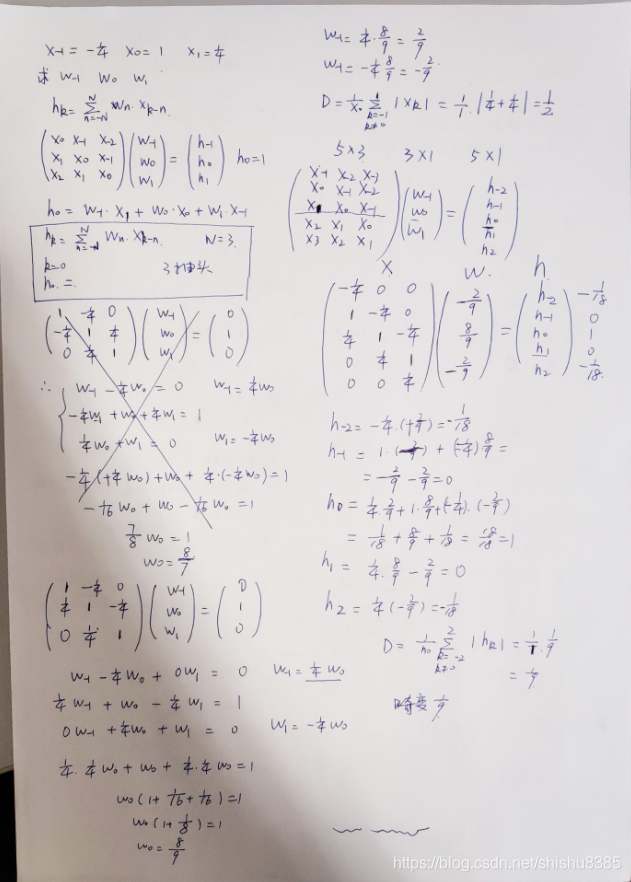 x-1 = -1/4 x0 = 1 x1 = 1/4
求 w-1 w0 w1
hk = Σ(n=-N → N) wn · xk-n
(x0 x-1 x-2) (w-1) (h-1)
(x1 x0 x-1) (w0) = (h0) h0=1
(x2 x1 x0) (w1) (h1)
h0 = w-1 · x1 + w0 · x0 + w1 · x-1
hk = Σ(n=-N → N) wn · xk-n N=3
k=0 3抽头
h0 =
(1 -1/4 0) (w-1) (0)
(-1/4 1 1/4) (w0) = (1)
(0 1/4 1) (w1) (0)
∴ w-1 - 1/4 w0 = 0 w-1 = 1/4 w0
-1/4 w-1 + w0 + 1/4 w1 = 1
1/4 w0 + w1 = 0 w1 = -1/4 w0
-1/4 (+1/4 w0) + w0 + 1/4 · (-1/4 w0) = 1
-1/16 w0 + w0 - 1/16 w0 = 1
7/8 w0 = 1
w0 = 8/7
(1 -1/4 0) (w-1) (0)
(1/4 1 -1/4) (w0) = (1)
(0 1/4 1) (w1) (0)
w-1 - 1/4 w0 + 0w1 = 0 w-1 = 1/4 w0
1/4 w-1 + w0 - 1/4 w1 = 1
0w-1 + 1/4 w0 + w1 = 0 w1 = -1/4 w0
1/4 · 1/4 w0 + w0 + 1/4 · 1/4 w0 = 1
w0 (1 + 1/16 + 1/16) = 1
w0 (1 + 1/8) = 1
w0 = 8/9
w-1 = 1/4 · 8/9 = 2/9
w-1 = -1/4 · 8/9 = -2/9
D = 1/x0 Σ(k=-1, k≠0 → 1) |xk| = 1/1 · |1/4 + 1/4| = 1/2
5×3 3×1 5×1
(x-1 x-2 x-3) (h-2)
(x0 x-1 x-2) (w-1) (h-1)
(x1 x0 x-1) (w0) = (h0)
(x2 x1 x0) (w1) (h1)
(x3 x2 x1) (h2)
X W. h
(-1/4 0 0) (h-2) -1/18
(1 -1/4 0) (-2/9) (h-1) 0
(1/4 1 -1/4) (8/9) = (h0) 1
(0 1/4 1) (-2/9) (h1) 0
(0 0 1/4) (h2) -1/18
h-2 = -1/4 · (+2/9) = -1/18
h-1 = 1 · + (-1/4) 8/9 =
= -2/9 - 2/9 = 0
h0 = 1/4 · 2/9 + 1 · 8/9 + (-1/4) · (-2/9)
= 1/18 + 8/9 + 1/18 = 18/18 = 1
h1 = 1/4 · 8/9 - 2/9 = 0
h2 = 1/4 (-2/9) = -1/18
D = 1/h0 Σ(k=-2, k≠0 → 2) |hk| = 1/1 · 1/9
= 1/9
畸变 1/9
https://blog.csdn.net/shishu8385